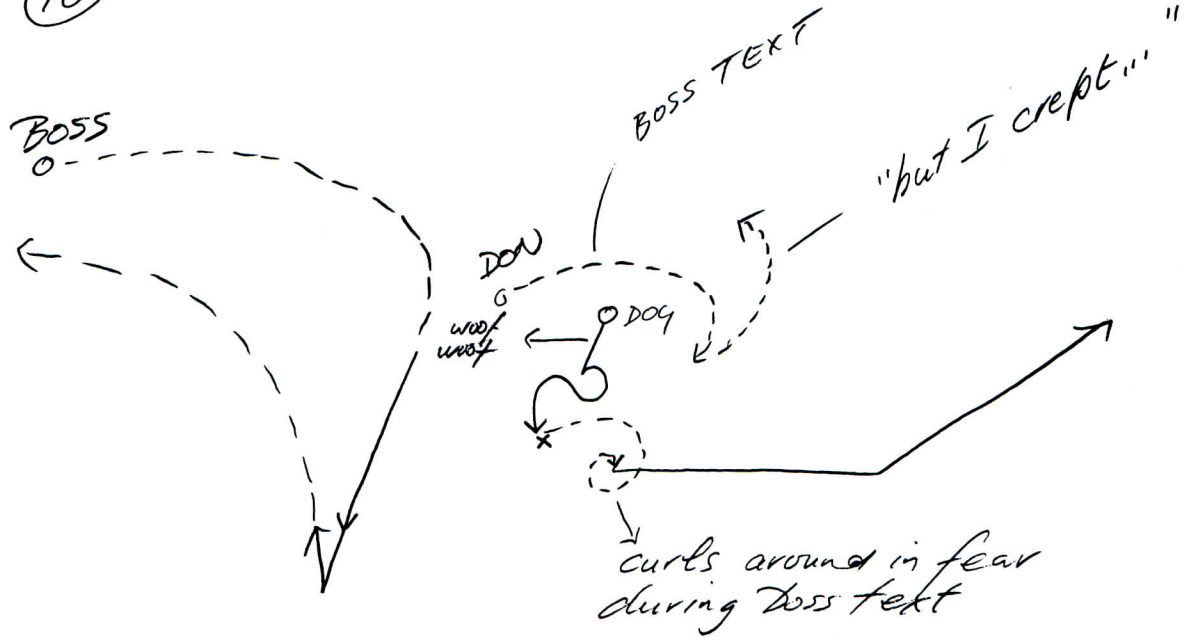 BOSS
BOSS TEXT
"but I crept..." "
DON
woof
woof
DOG
curls around in fear
during Boss text